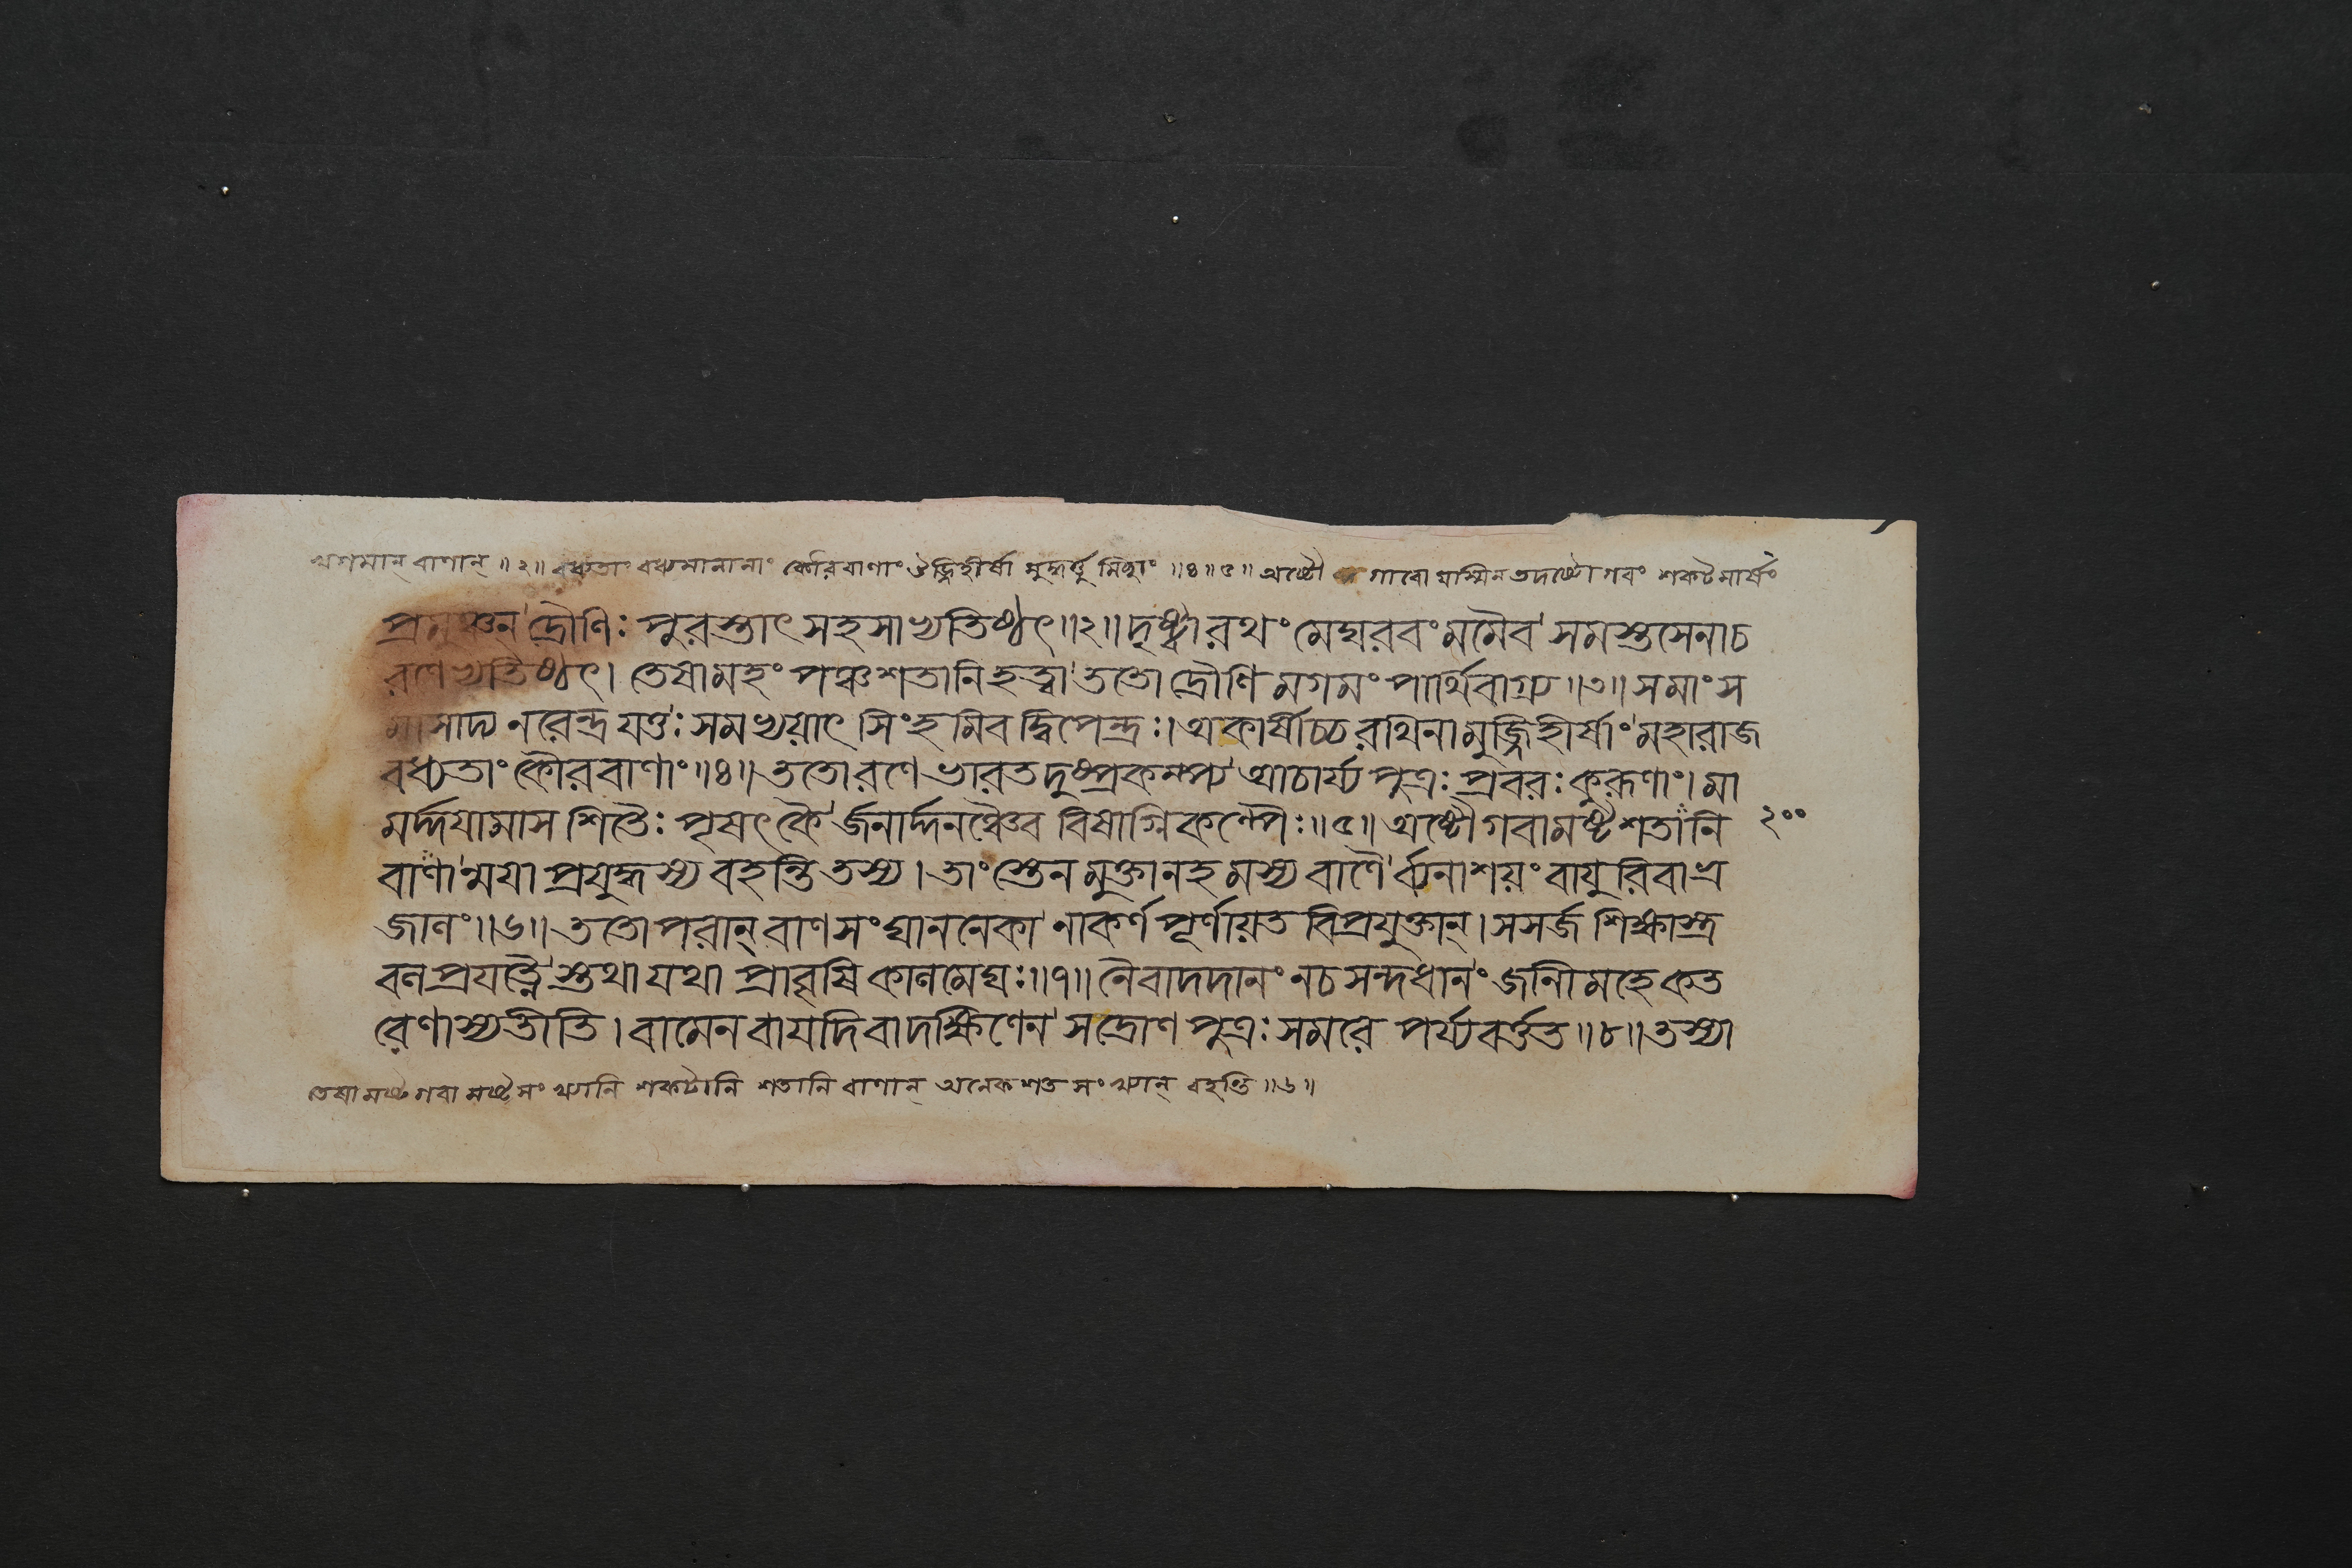 খগমান্ বাণান্ ॥২॥ বধ্যতাং বধ্যমানানাং কৌরবাণাং উজ্জিহীর্ষা মুদ্ধর্ত্তু মিচ্ছাং ॥৪॥৫॥ অষ্টৌ গাবো যস্মিন তদষ্টৌগবং শকটমার্ষং
প্রমুঞ্চন দ্রৌণিঃ পুরস্তাৎ সহসাভ্যতিষ্ঠৎ॥২॥ দৃষ্ট্বা রথং মেঘরবং মমৈব সমস্তসেনাচ
রণেভ্যতিষ্ঠৎ। তেষামহং পঞ্চশতানি হত্বা ততো দ্রৌণি মগমং পার্থিবাগ্র্য॥৩॥ সমাং স
মাসাদ্য নরেন্দ্র যত্তঃ সমভ্যয়াৎ সিংহমিব দ্বিপেন্দ্রঃ। অকার্ষীচ্চ রথিনামুজ্জিহীর্ষাং মহারাজ
বধ্যতাং কৌরবাণাং॥৪॥ ততোরণে ভারত দুষ্প্রকম্প্য আচার্য্য পুত্রঃ প্রবরঃ কুরূণাং। মা
মর্দ্দযামাস শিতৈঃ পৃষৎকৈ র্জনার্দ্দনঞ্চৈব বিষাগ্নিকল্পৈঃ॥৫॥ অষ্টৌগবামষ্টশতানি ২০০
বাণান্ময়া প্রযুদ্ধস্য বহন্তি তস্য। তাংস্তেন মুক্তানহমস্য বাণৈ র্ব্যনাশয়ং বায়ুরিবাভ্র
জালং॥৬॥ ততোপরান্ বাণসংঘাননেকা নাকর্ণ পূর্ণায়ত বিপ্রযুক্তান্। সসর্জ শিক্ষাস্ত্র
বল প্রযত্নৈ স্তথা যথা প্রাবৃষি কালমেঘঃ॥৭॥ নৈবাদদানং নচ সন্দধানং জানীমহে কত
রেণাস্যতীতি। বামেন বা যদি বা দক্ষিণেন স দ্রোণ পুত্রঃ সমরে পর্য্যবর্ত্তত॥৮॥ তস্যা
তেষামষ্টগবা মষ্টসংখ্যানি শকটানি শতানি বাণান্ অনেকশত সংখ্যান্ বহন্তি॥৬॥